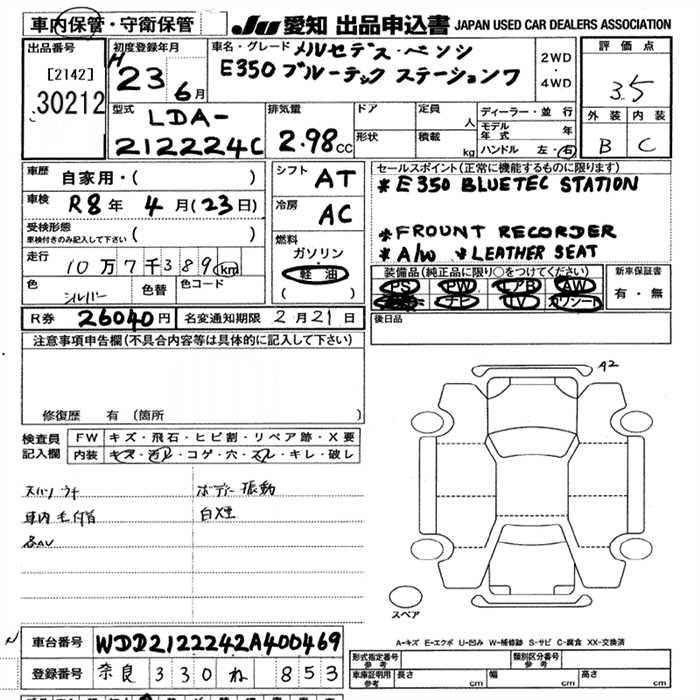 車内保管・守衛保管
JU 愛知 出品申込書 JAPAN USED CAR DEALERS ASSOCIATION
出品番号
[2142]
30212
初度登録年月
H 23 6月
車名・グレード メルセデス・ベンツ
E350 ブルーテック ステーションワ
2WD
・
4WD
評価点
3.5
外装 内装
B C
型式
LDA-
212224C
排気量
2.98CC
ドア
形状
定員 人
積載 kg
ディーラー・並行
モデル年式 年
ハンドル 左・右
車歴
自家用・( )
車検
R8年 4月(23日)
受検形態
車検付きのみ記入して下さい ( )
走行
10万7千389km
色 シルバー 色替 色コード
R券 26040円 名変通知期限 2月21日
シフト AT
冷房 AC
燃料
ガソリン・
軽油
( )
セールスポイント(正常に機能するものに限ります)
* E350 BLUETEC STATION
* FROUNT RECORDER
* A/W * LEATHER SEAT
装備品(純正品に限り○をつけてください)
PS PW エアB AW
ナビ TV カワシート
新車保証書
有・無
後日品
注意事項申告欄(不具合内容等は具体的に記入して下さい)
修復歴 有 (箇所 )
検査員
記入欄
FW キズ・飛石・ヒビ割・リペア跡・X要
内装 キズ・汚レ・コゲ・穴・スレ・キレ・破レ
ボデー振動
車内毛付着 白煙
A2
スペア
A-キズ E-エクボ U-凹み W-補修跡 S-サビ C-腐食 XX-交換済
車台番号 WDD2122242A400469
登録番号 奈良 330 ね 853
形式指定番号
参考
類別区分番号
参考
車庫証明用
参考
長さ cm 幅 cm 高さ cm